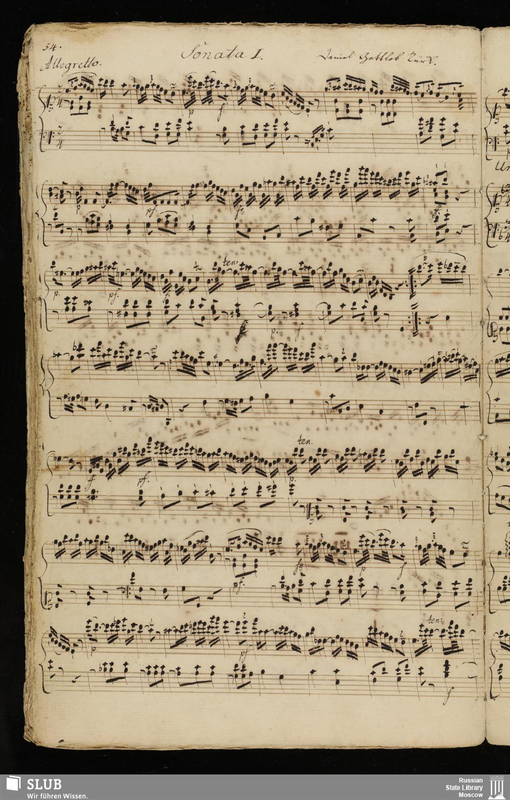 54.
Sonata I.
Daniel Gottlob Türk.
Allegretto.
p f
p pf fz
ten.
p. pf. p.
ten.
f pf. p.
pf. fz f
ten.
p pf f
SLUB
Wir führen Wissen.
Russian
State Library
Moscow